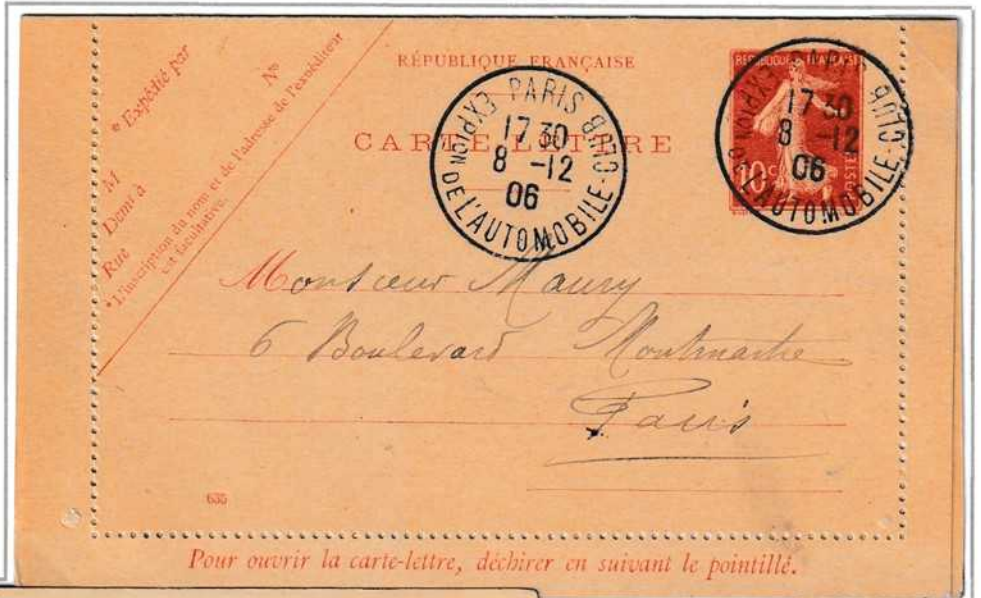 * Expédié par
N°
M
Demt à
Rue
* L'inscription du nom et de l'adresse de l'expéditeur
est facultative.
RÉPUBLIQUE FRANÇAISE
CARTE LETTRE
PARIS EXPION DE L'AUTOMOBILE-CLUB
17 30
8 -12
06
RÉPUBLIQUE FRANÇAISE
10c
POSTES
PARIS EXPION DE L'AUTOMOBILE-CLUB
17 30
8 -12
06
Monsieur Maury
6 Boulevard Montmartre
Paris
635
Pour ouvrir la carte-lettre, déchirer en suivant le pointillé.